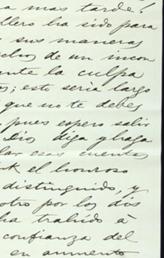 a mas tarde!
llero ha sido para
sus maneras
de un incon
ente la culpa
; este seria largo
que no te debes
pues espero salir
diga y haga
las cosas cuentas
el honroso
distinguido, y
otro por los dos
ha trahido á
confianza del
en aumento